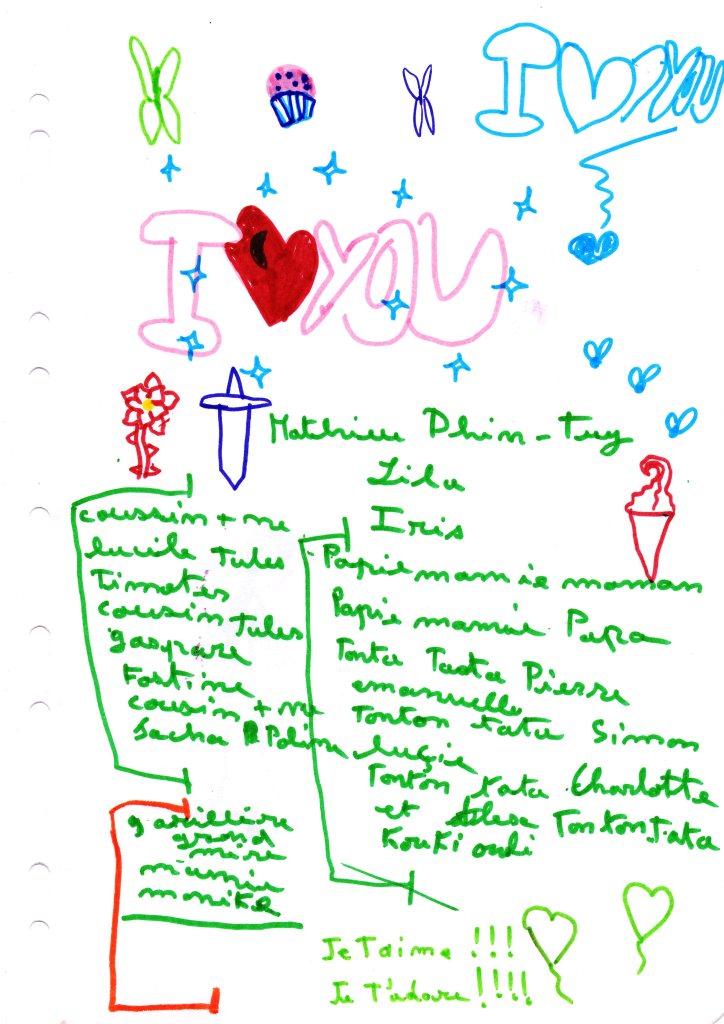 I YOU
I YOU
Mathieu Dhin-Tuy
Lila
Iris
coussin + ne
lucile Tules
Timotes
cousin Tules
gaspare
Fostine
cousin + ne
Sacha Poline
Papie mamie maman
Papie mamie Papa
Tonta Tata Pierre
emanuelle
Tonton tata Simon
luçie
Tonton tata Charlotte
et Tonton Tata
Kouki
grand
mère
mamie
monike
Je T'aime !!!
Je T'adore !!!!